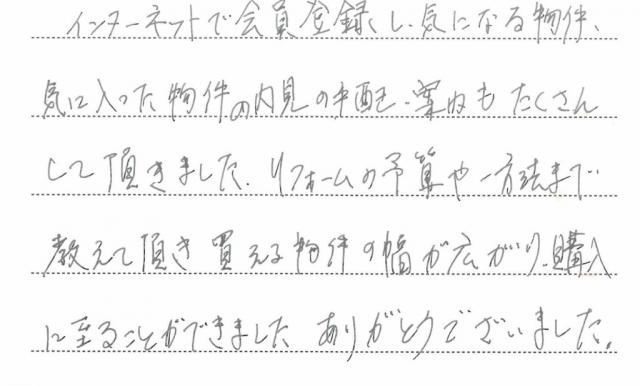 インターネットで会員登録し、気になる物件、
気に入った物件の内見の手配、案内もたくさん
して頂きました。リフォームの予算や方法まで
教えて頂き買える物件の幅が広がり、購入
に至ることができました ありがとうございました。